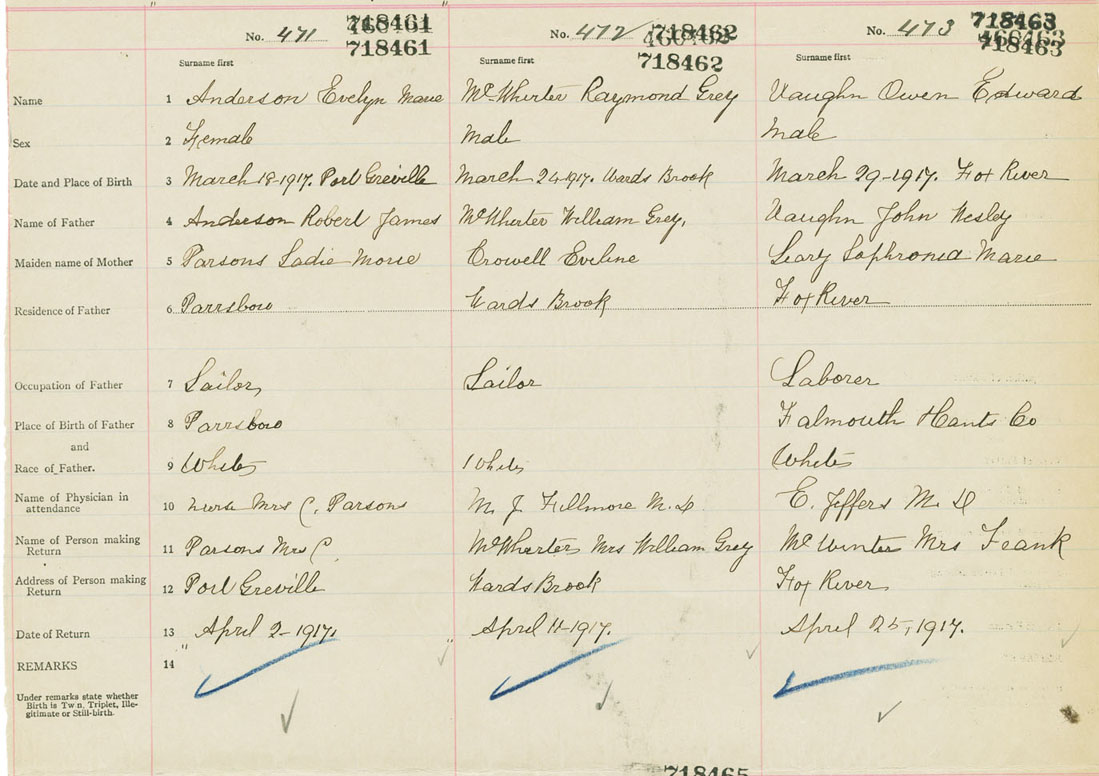 No. 471 718461 460461 No. 472 718462 460462 No. 473 718463 460463
718461 718462 718463
Surname first Surname first Surname first
Name 1 Anderson Evelyn Marie McWherter Raymond Grey Vaughn Owen Edward
Sex 2 Female Male Male
Date and Place of Birth 3 March 18-1917. Port Greville March 24-1917. Wards Brook March 29-1917. Fox River
Name of Father 4 Anderson Robert James McWherter William Grey, Vaughn John Wesley
Maiden name of Mother 5 Parsons Sadie Crowell Eveline Leary Sophronia Marie
Residence of Father 6 Parrsboro Wards Brook Fox River
Occupation of Father 7 Sailor, Sailor Laborer
Place of Birth of Father 8 Parrsboro Falmouth Hants Co
and
Race of Father. 9 White White White
Name of Physician in
attendance 10 nurse Mrs C. Parsons M. J. Fillmore M.D. E. Jeffers M.D
Name of Person making
Return 11 Parsons Mrs C. McWherter Mrs William Grey Mc Winter Mrs Frank
Address of Person making
Return 12 Port Greville Wards Brook Fox River
Date of Return 13 April 2-1917. April 11-1917. April 25, 1917.
REMARKS 14 " "
Under remarks state whether
Birth is Twin, Triplet, Ille-
gitimate or Still-birth.
718465